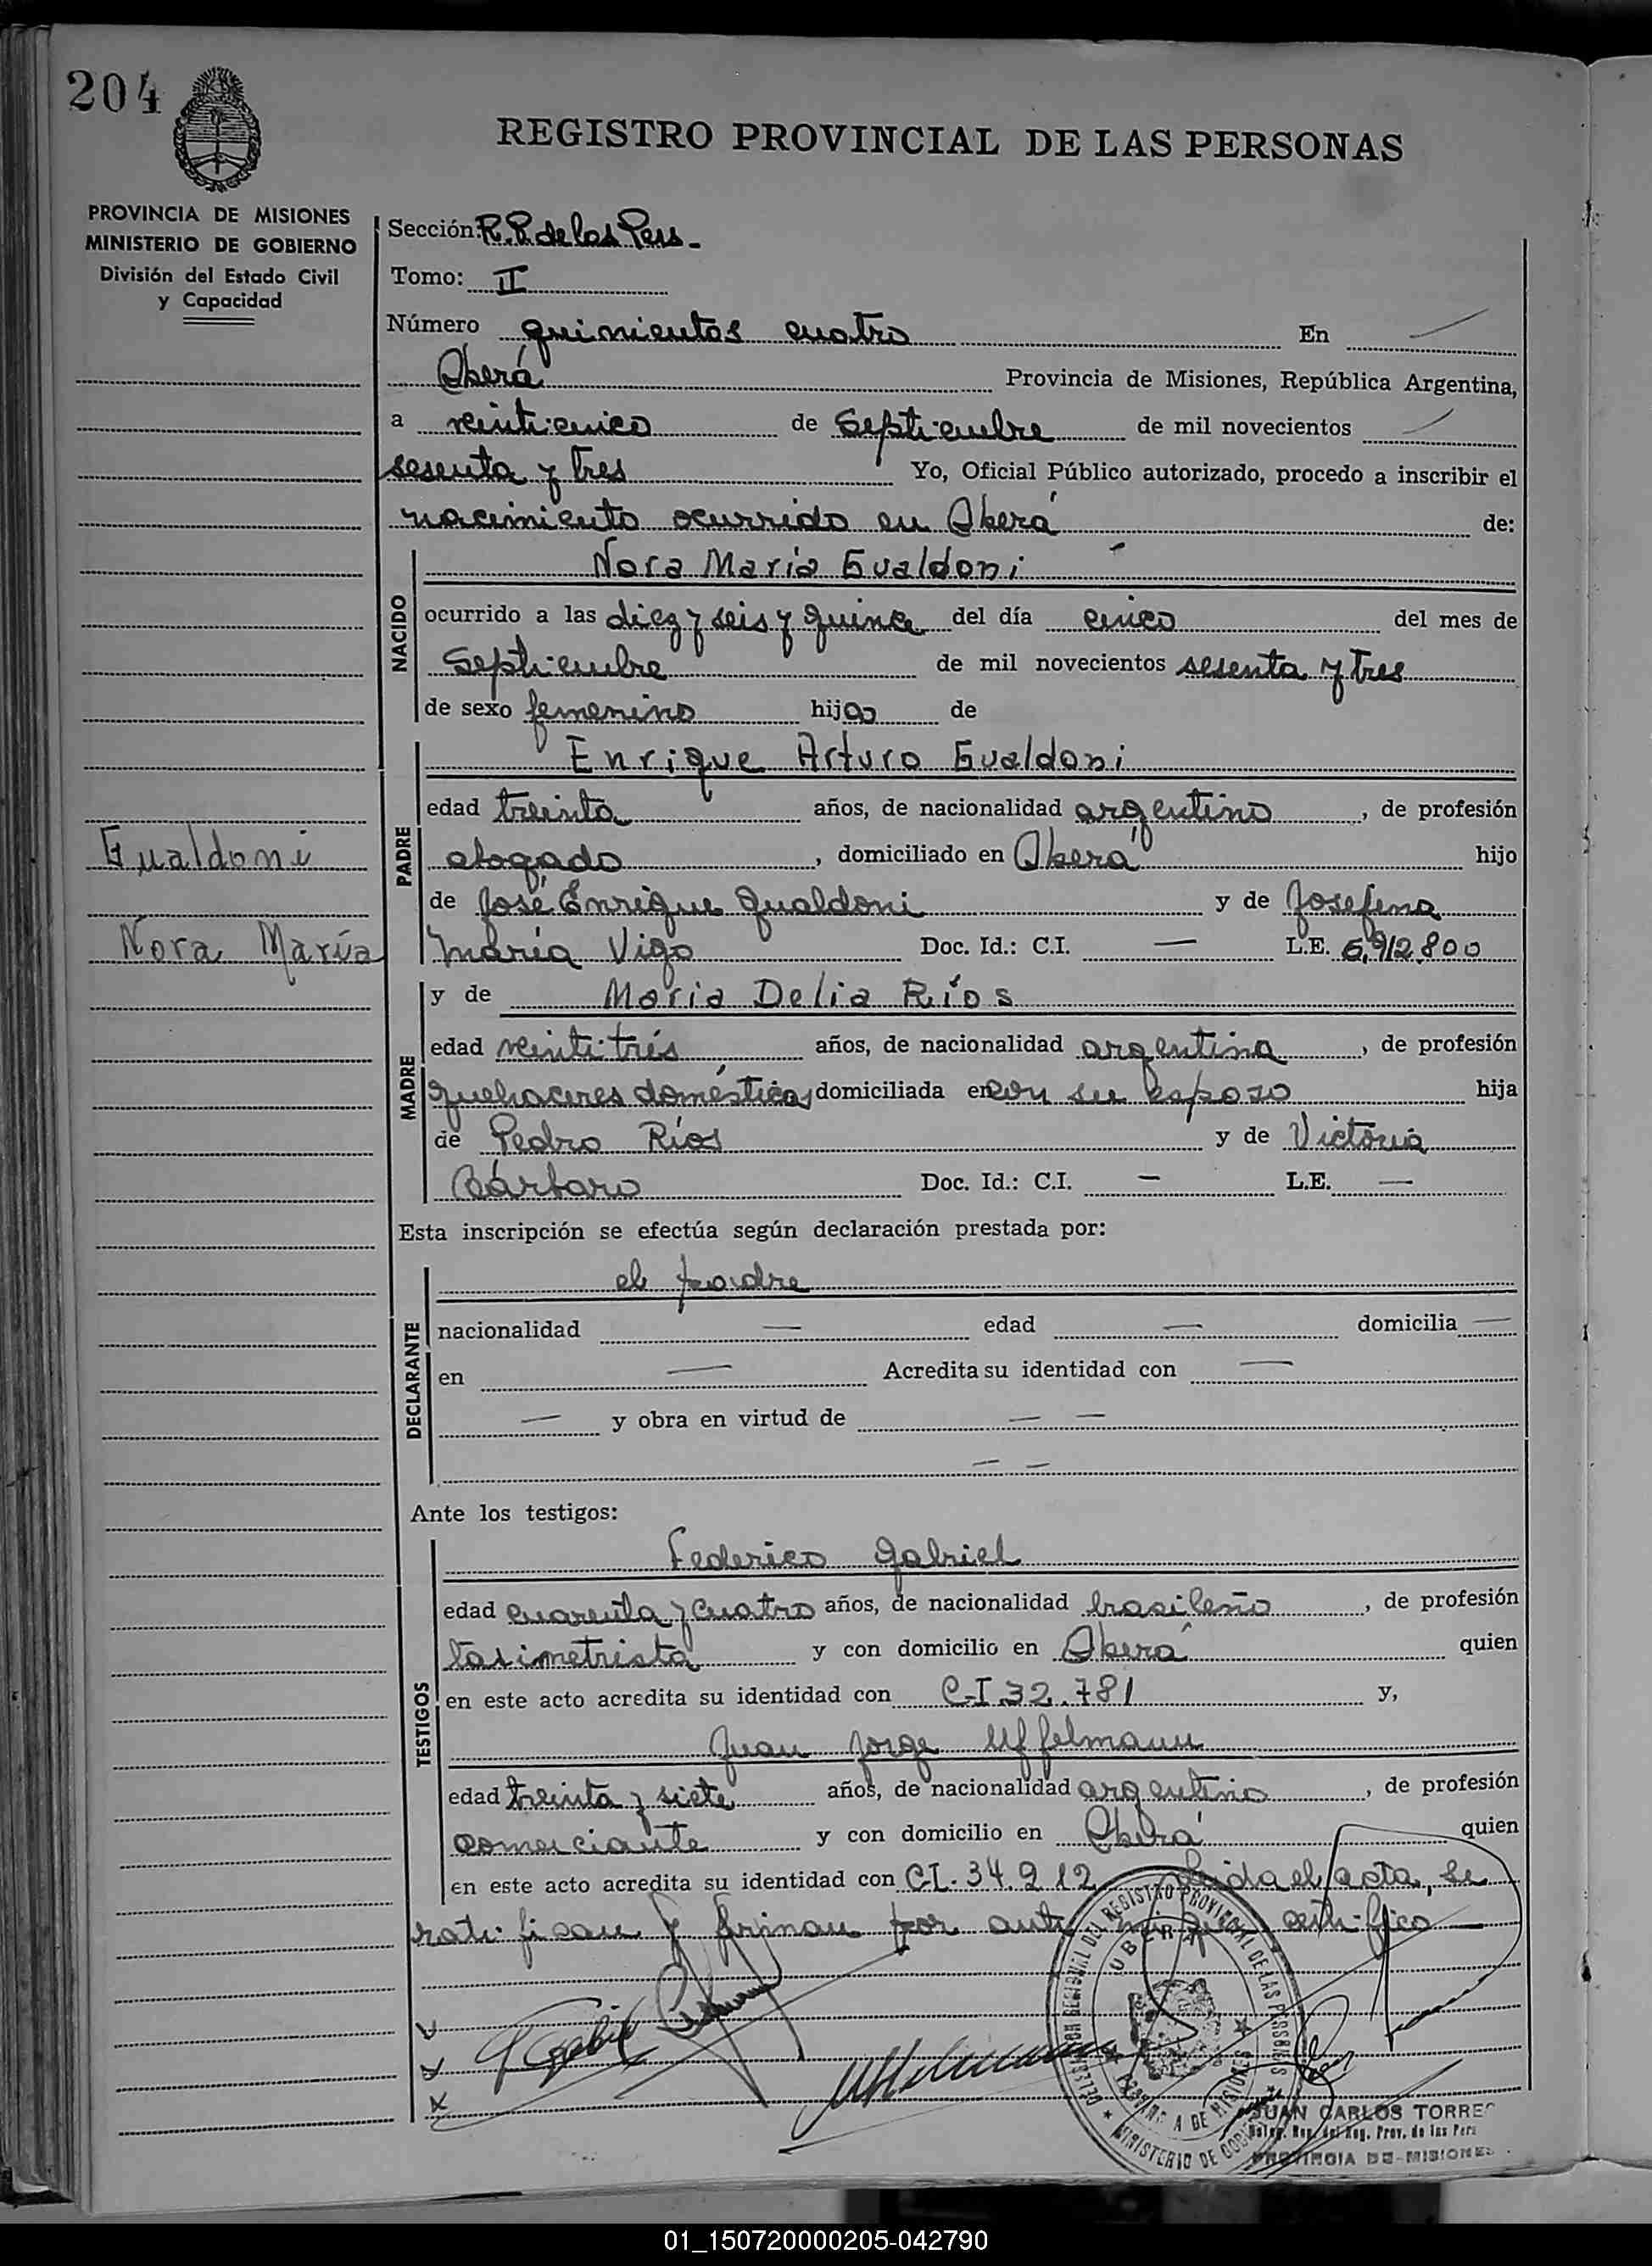 204
REGISTRO PROVINCIAL DE LAS PERSONAS
PROVINCIA DE MISIONES
MINISTERIO DE GOBIERNO
División del Estado Civil
y Capacidad
Sección: R.P. de las Pers.-
Tomo: II
Número quinientos cuatro En
Oberá Provincia de Misiones, República Argentina,
a veinticinco de Septiembre de mil novecientos
sesenta y tres Yo, Oficial Público autorizado, procedo a inscribir el
nacimiento ocurrido en Oberá de:
NACIDO
Nora María Gualdoni
ocurrido a las diez y seis y quince del día cinco del mes de
Septiembre de mil novecientos sesenta y tres
de sexo femenino hija de
PADRE
Enrique Arturo Gualdoni
edad treinta años, de nacionalidad argentino, de profesión
abogado, domiciliado en Oberá hijo
Gualdoni
de José Enrique Gualdoni y de Josefina
Nora María
María Vigo Doc. Id.: C.I. — L.E. 6,912.800
MADRE
y de María Delia Ríos
edad veintitrés años, de nacionalidad argentina, de profesión
quehaceres domésticos domiciliada en con su esposo hija
de Pedro Ríos y de Victoria
Bárbaro Doc. Id.: C.I. — L.E. —
Esta inscripción se efectúa según declaración prestada por:
DECLARANTE
el padre
nacionalidad — edad — domicilia —
en — Acredita su identidad con —
— y obra en virtud de — —
— —
Ante los testigos:
TESTIGOS
Federico Gabriel
edad cuarenta y cuatro años, de nacionalidad brasileño, de profesión
tasimetrista y con domicilio en Oberá quien
en este acto acredita su identidad con C.I. 32.781 y,
Juan Jorge Uffelmann
edad treinta y siete años, de nacionalidad argentino, de profesión
comerciante y con domicilio en Oberá quien
en este acto acredita su identidad con C.I. 34.912 Leída el acta, se
ratifican y firman por ante mi que certifico —
REGIONAL DEL REGISTRO PROVINCIAL DE LAS PERSONAS
OBERA
PROVINCIA DE MISIONES
MINISTERIO DE GOBIERNO
JUAN CARLOS TORRES
Deleg. Reg. del Reg. Prov. de las Pers
PROVINCIA DE MISIONES
01_150720000205-042790